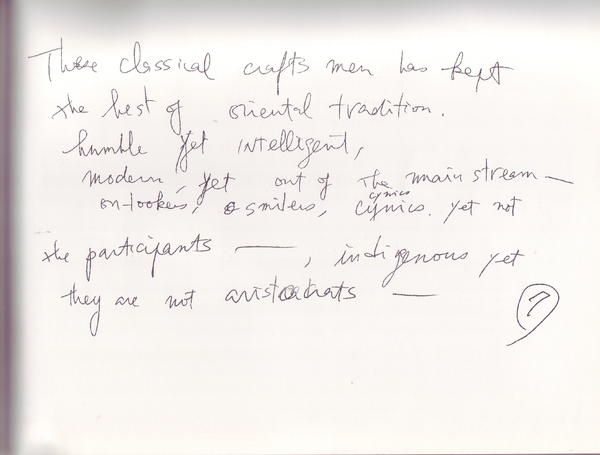 These classical crafts men has kept
the best of oriental tradition.
humble yet intelligent,
modern, yet out of the main stream —
cynics
on-lookers, smilers, cynics. yet not
the participants —, indigenous yet
they are not aristocrats —
7